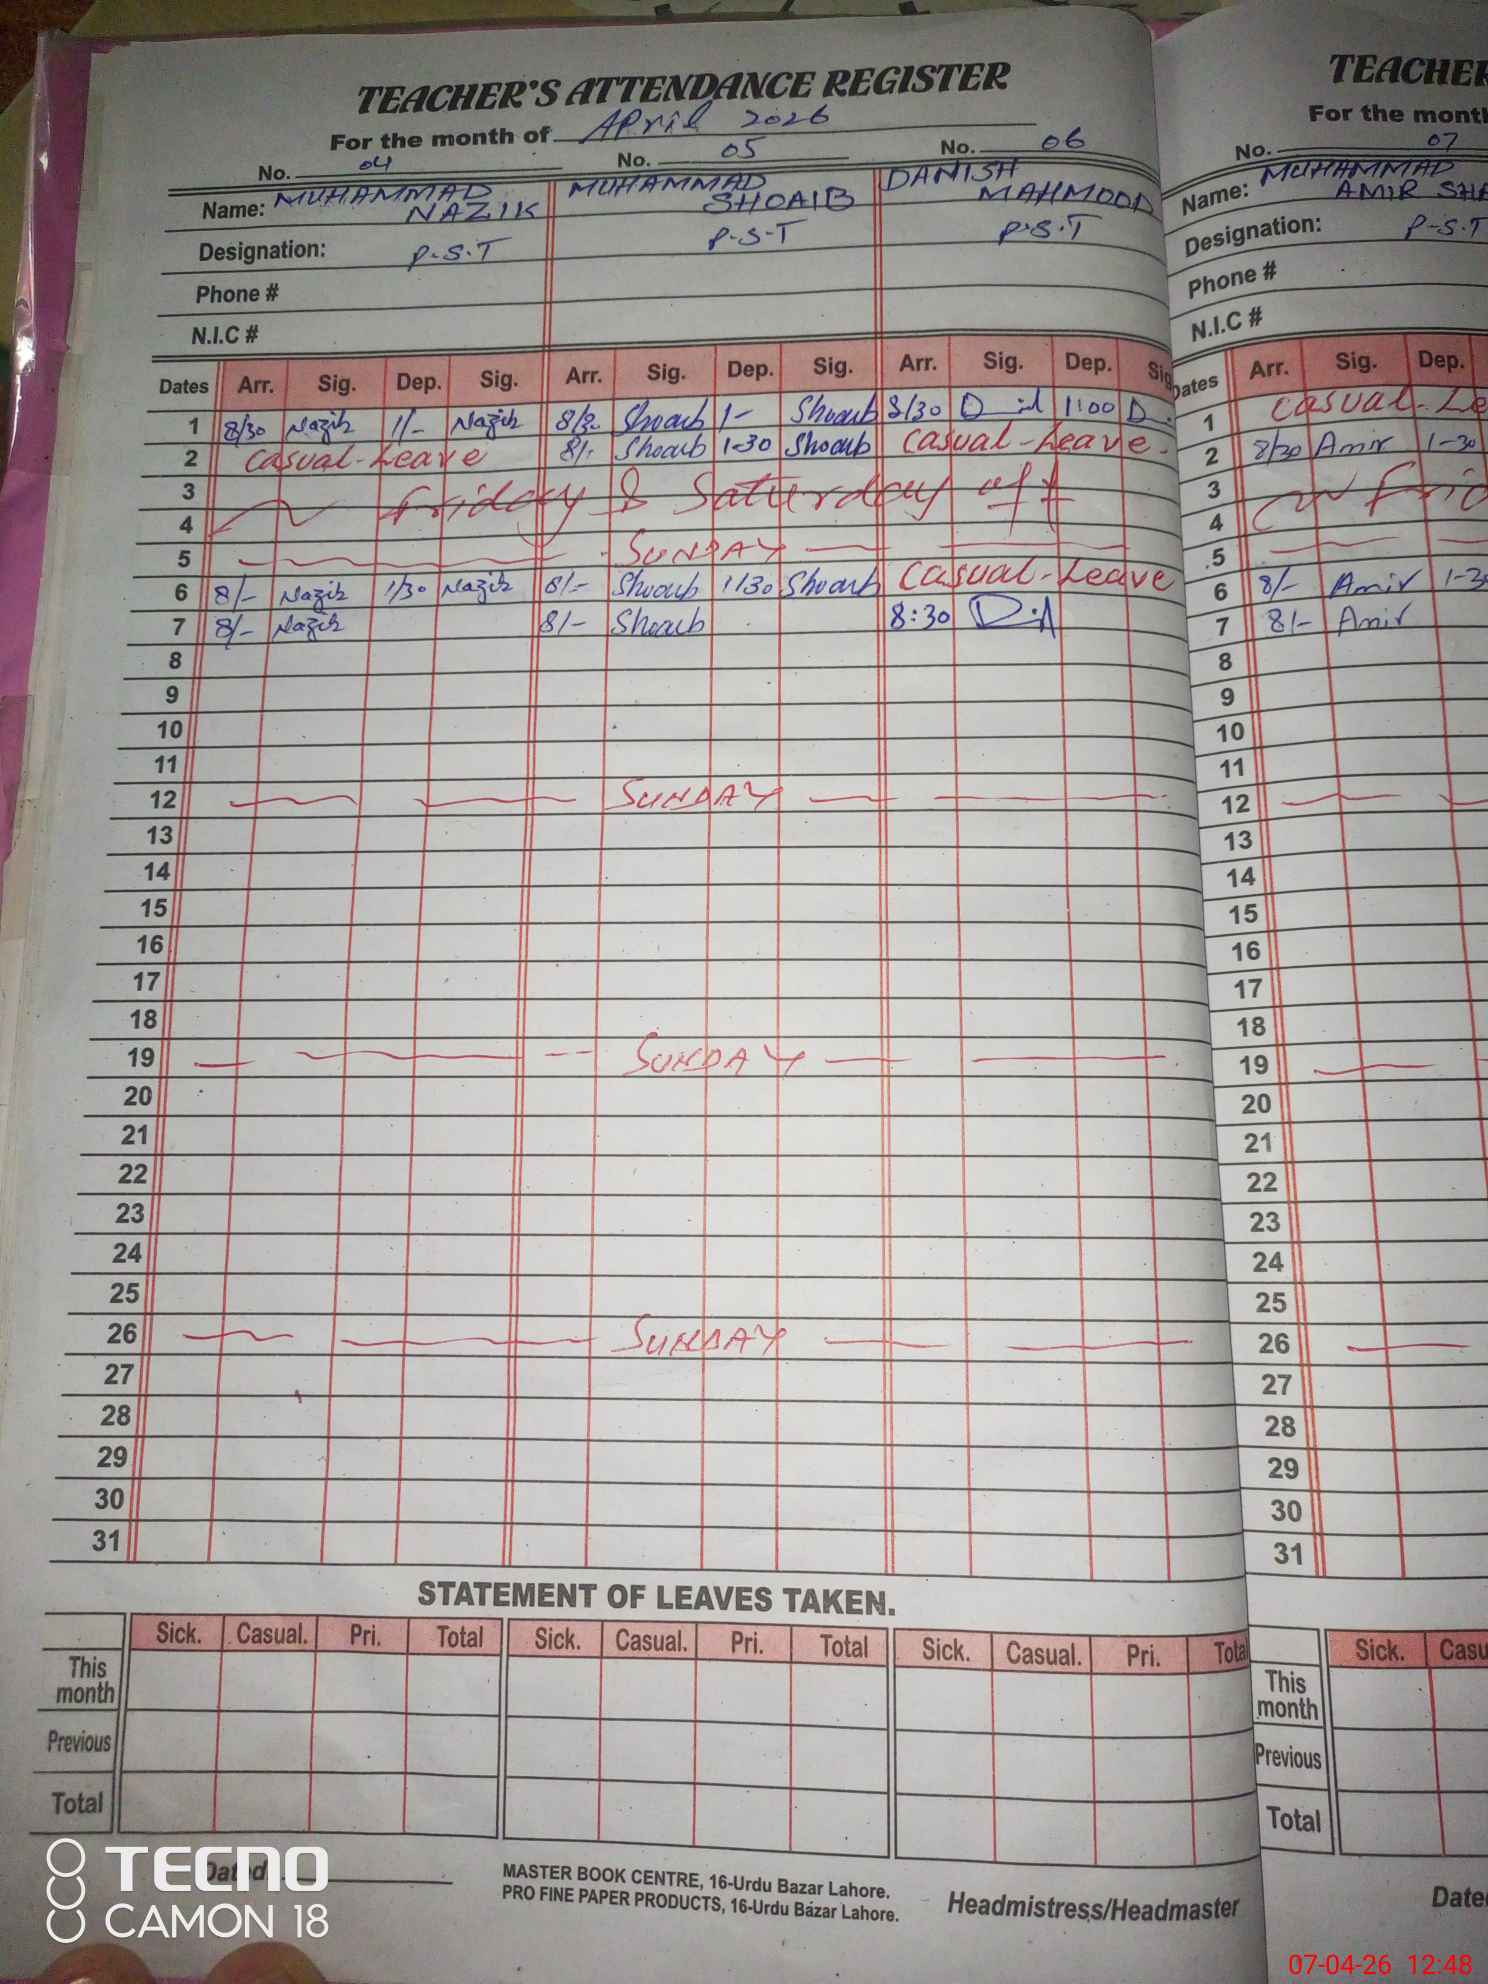 TEACHER'S ATTENDANCE REGISTER
For the month of April 2026
No. 04 No. 05 No. 06
Name: MUHAMMAD NAZIK MUHAMMAD SHOAIB DANISH MAHMOOD
Designation: P.S.T P.S.T P.S.T
Phone #
N.I.C #
Dates Arr. Sig. Dep. Sig. Arr. Sig. Dep. Sig. Arr. Sig. Dep. Sig
1 8/30 Nazik 1/- Nazik 8/30 Shoaib 1- Shoaib 8/30 1:00
2 Casual-Leave 8/- Shoaib 1-30 Shoaib Casual-Leave
3 Friday & Saturday off
4
5 SUNDAY
6 8/- Nazik 1/30 Nazik 8/- Shoaib 1/30 Shoaib Casual-Leave
7 8/- Nazik 8/- Shoaib 8:30
8
9
10
11
12 SUNDAY
13
14
15
16
17
18
19 SUNDAY
20
21
22
23
24
25
26 SUNDAY
27
28
29
30
31
STATEMENT OF LEAVES TAKEN.
Sick. Casual. Pri. Total Sick. Casual. Pri. Total Sick. Casual. Pri. Total
This month
Previous
Total
Dated
MASTER BOOK CENTRE, 16-Urdu Bazar Lahore.
PRO FINE PAPER PRODUCTS, 16-Urdu Bazar Lahore.
Headmistress/Headmaster
TECNO
CAMON 18
TEACHER
For the month
No. 07
Name: MUHAMMAD AMIR
Designation: P-S.T
Phone #
N.I.C #
Dates Arr. Sig. Dep.
1 Casual-Le
2 8/30 Amir 1-30
3 Frid
4
5
6 8/- Amir 1-30
7 8/- Amir
8
9
10
11
12
13
14
15
16
17
18
19
20
21
22
23
24
25
26
27
28
29
30
31
Sick. Casu
This month
Previous
Total
Date
07-04-26 12:48